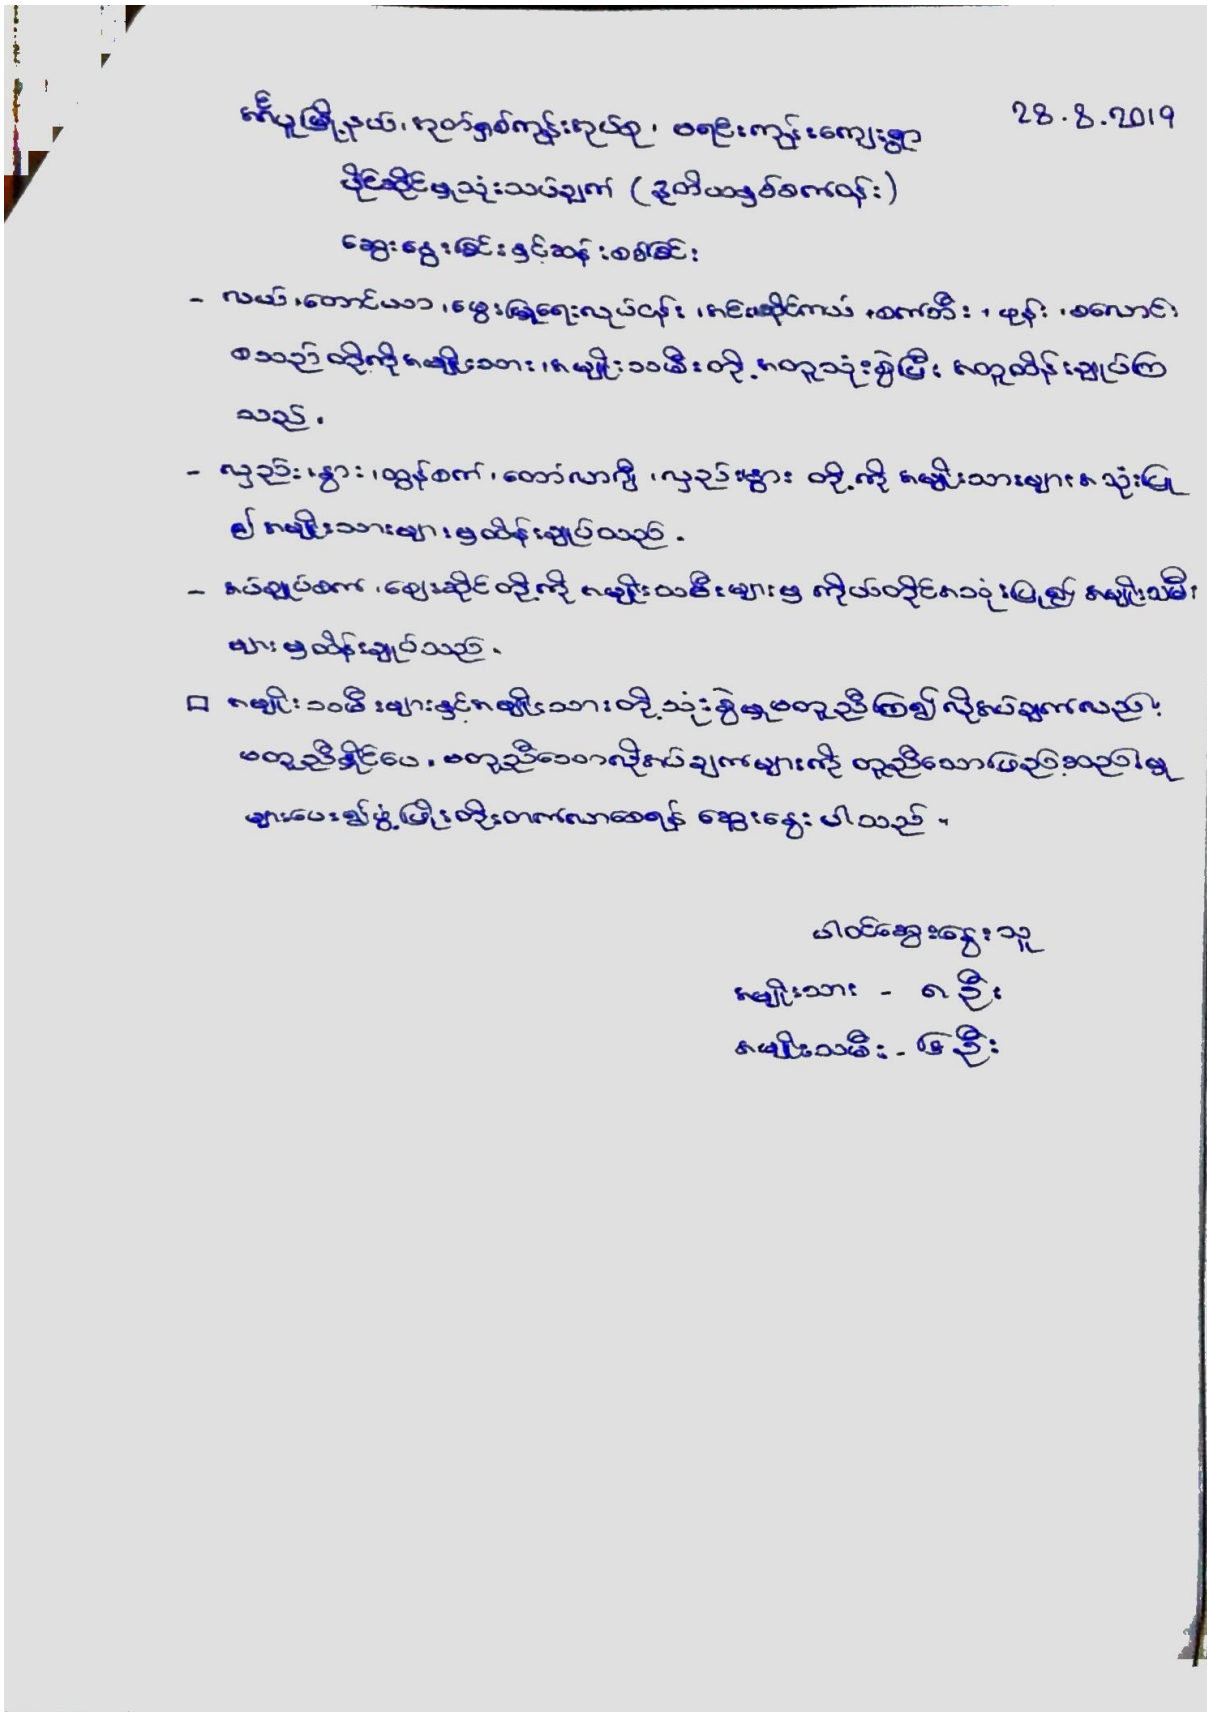 28.8.2019
အင်္ဂပူမြို့နယ်၊ အုတ်ရှစ်ကျွန်းအုပ်စု၊ မရမ်းကျွန်းကျေးရွာ
ပိုင်ဆိုင်မှုသုံးသပ်ချက် (ဒုတိယနှစ်စက်ဝန်း)
ဆွေးနွေးခြင်းနှင့်ဆန်းစစ်ခြင်း
- လယ်၊ တောင်ယာ၊ မွေးမြူရေးလုပ်ငန်း၊ ဆိုင်ကယ်၊ စက်ဘီး၊ ဖုန်း၊ စလောင်း
စသည်တို့ကို အမျိုးသား၊ အမျိုးသမီးတို့ အတူသုံးစွဲပြီး အတူထိန်းချုပ်ကြ
သည်။
- လှည်း၊ နွား၊ ထွန်စက်၊ တော်လာဂျီ၊ လှည်းနွား တို့ကို အမျိုးသားများအသုံးပြု
၍ အမျိုးသားများမှထိန်းချုပ်သည်။
- အပ်ချုပ်စက်၊ ဈေးဆိုင်တို့ကို အမျိုးသမီးများမှ ကိုယ်တိုင်အသုံးပြု၍ အမျိုးသမီး
များမှထိန်းချုပ်သည်။
□ အမျိုးသမီးများနှင့်အမျိုးသားတို့သုံးစွဲမှုမတူညီကြ၍ လိုအပ်ချက်လည်း
မတူညီနိုင်ပေ။ မတူညီသောလိုအပ်ချက်များကို တူညီသောဖြည့်ဆည်းမှု
များပေး၍ဖွံ့ဖြိုးတိုးတက်လာစေရန် ဆွေးနွေးပါသည်။
ပါဝင်ဆွေးနွေးသူ
အမျိုးသား - ၈ ဦး
အမျိုးသမီး - ဦး